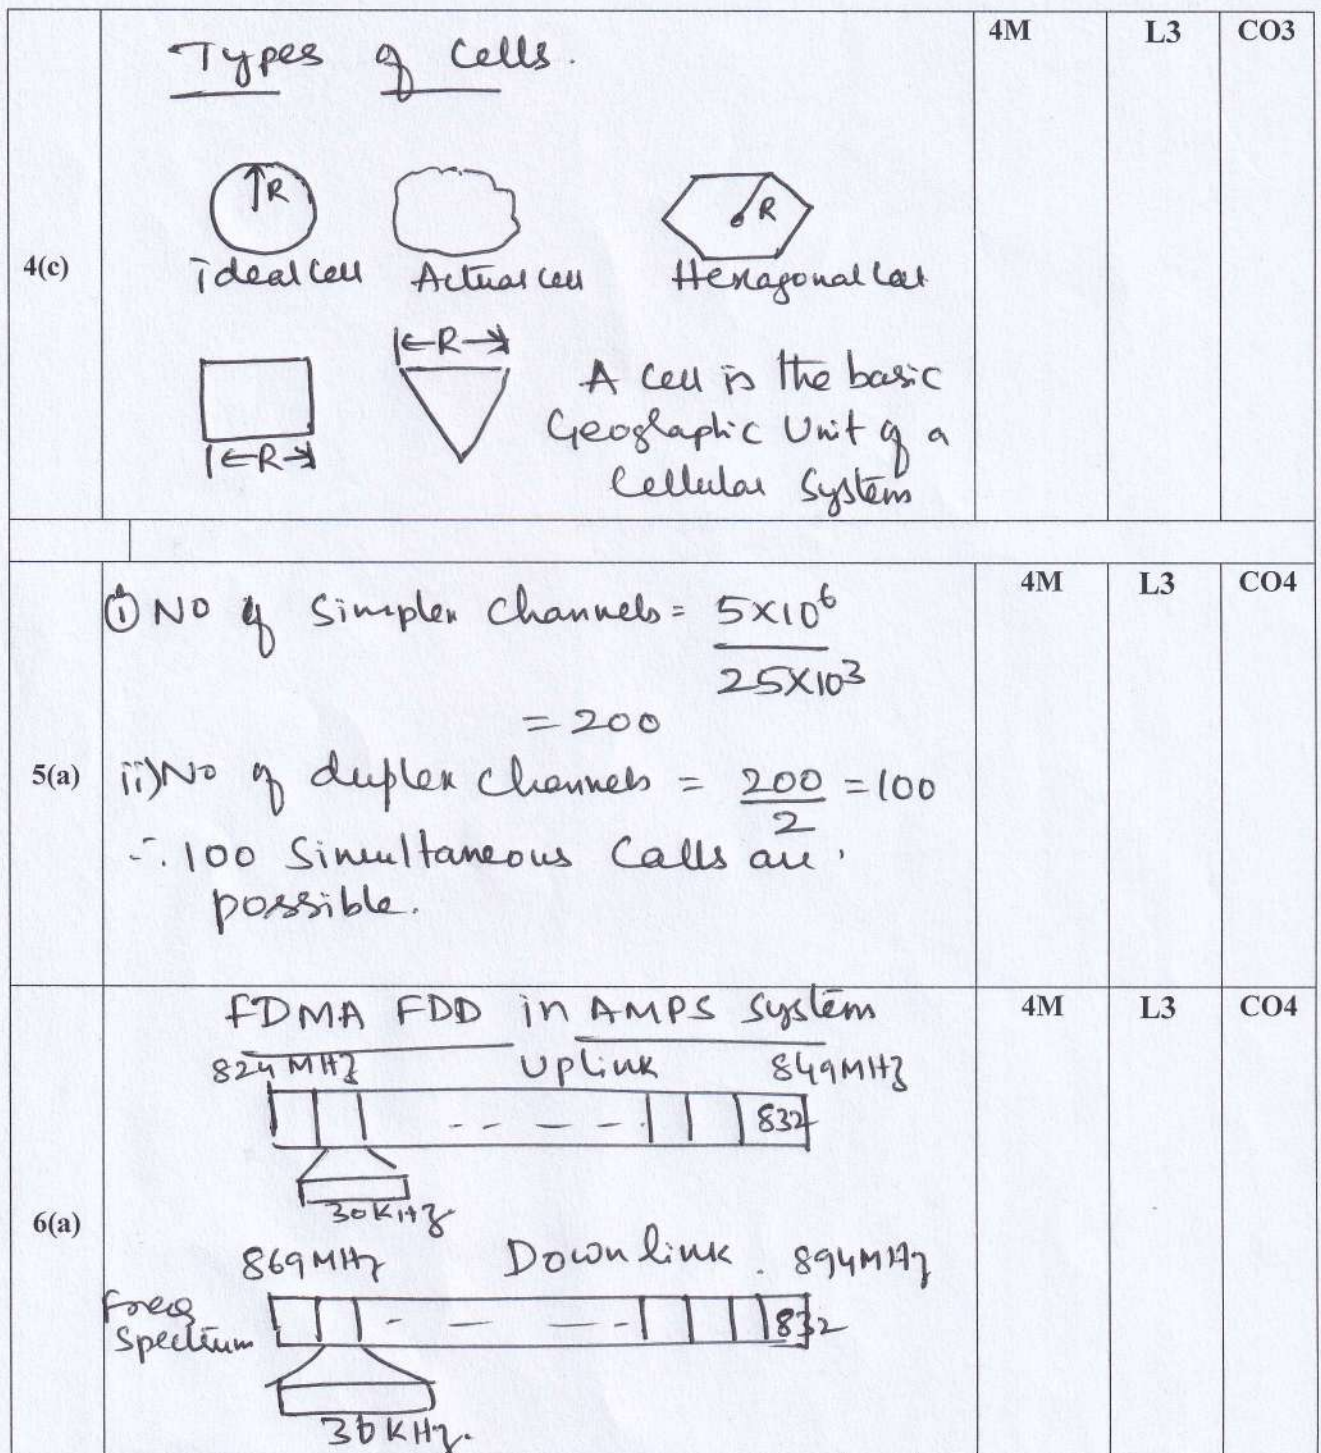 4(c)
Types of Cells.
4M L3 CO3
R R
ideal cell Actual cell Hexagonal cell
|←R→|
A cell is the basic
Geographic Unit of a
|←R→|
Cellular System
5(a)
① No of Simplex Channels = 5×10⁶
25×10³
4M L3 CO4
= 200
ii) No of duplex channels = 200/2 = 100
∴ 100 Simultaneous Calls are
possible.
6(a)
FDMA FDD in AMPS System
4M L3 CO4
824 MHz Uplink 849 MHz
832
30 KHz
869 MHz Downlink. 894 MHz
Freq
Spectrum
832
30 KHz.